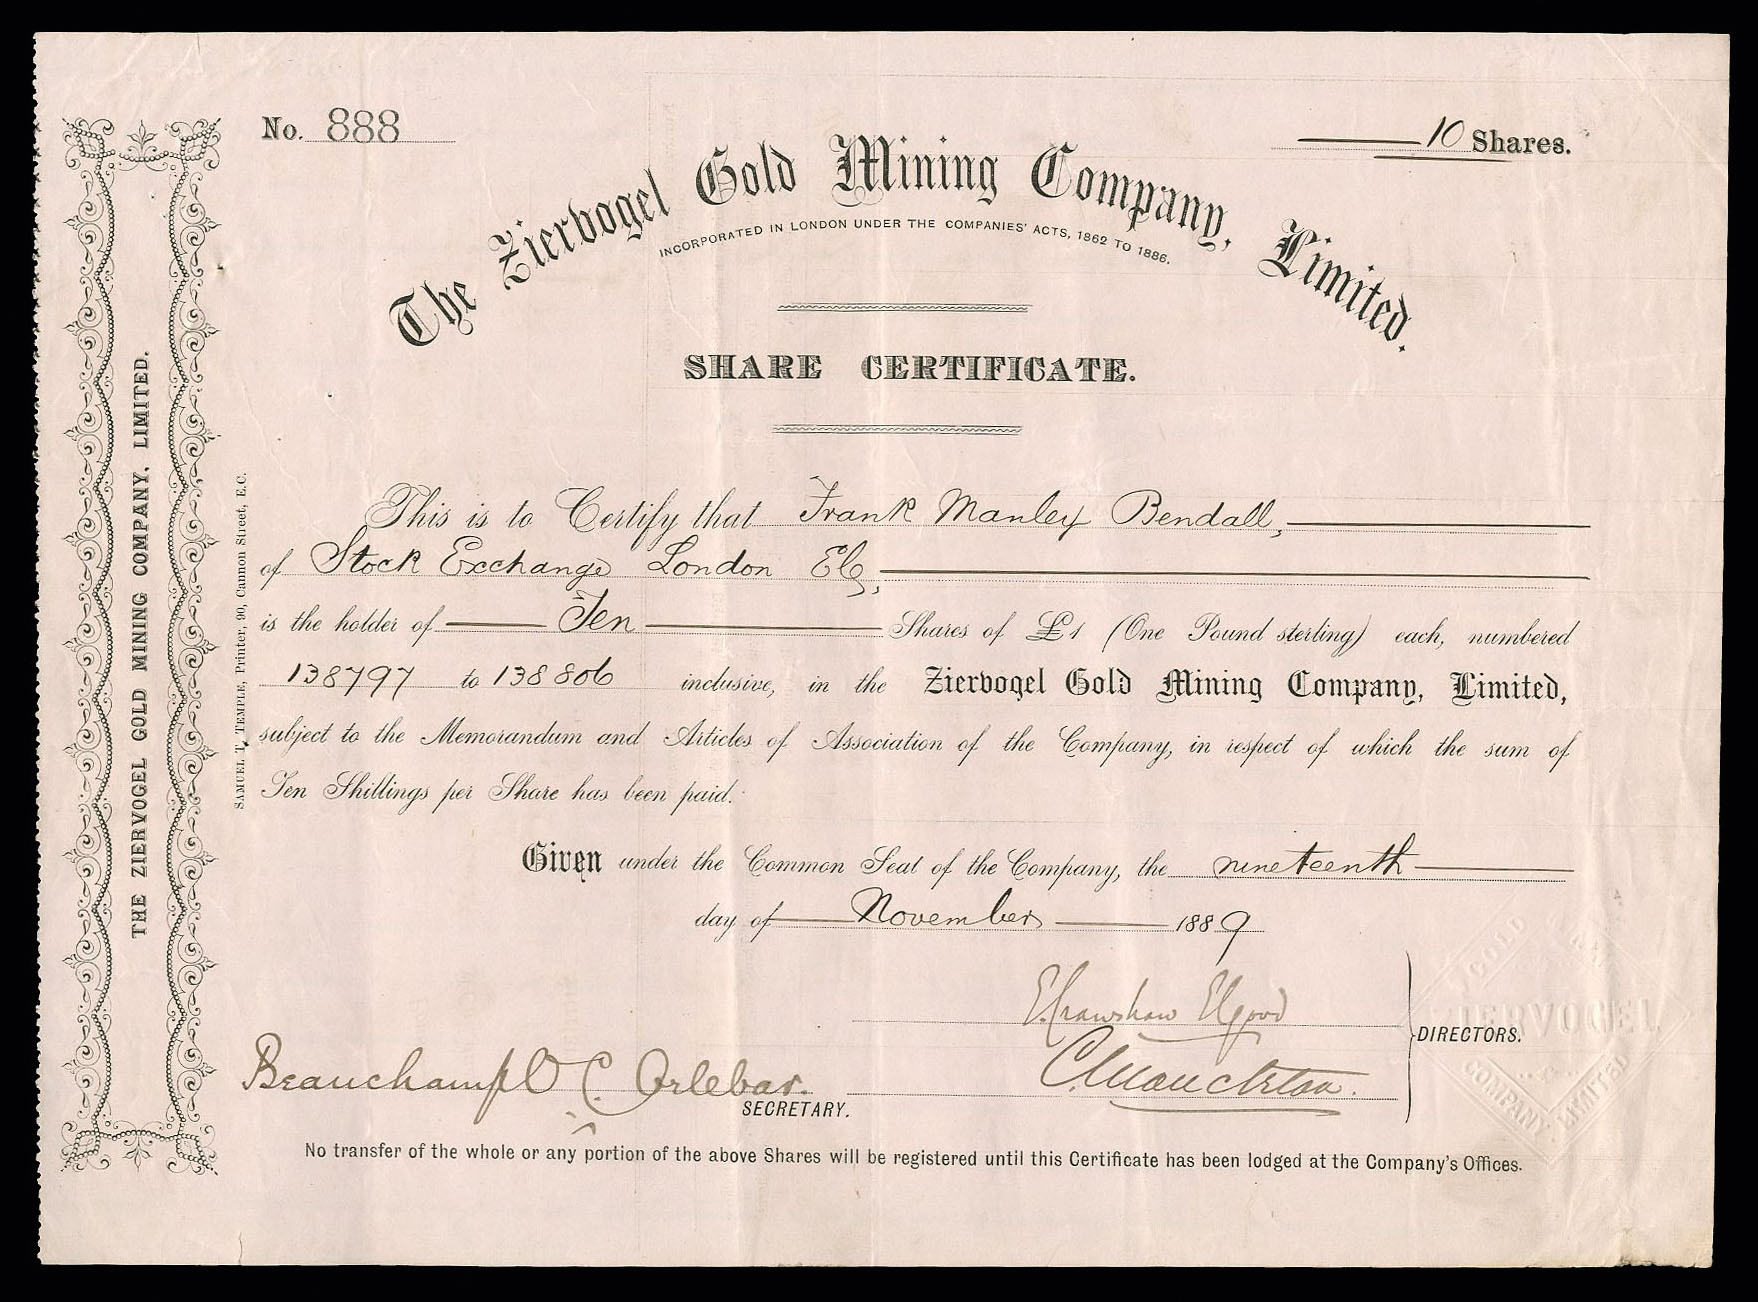 No. 888
10 Shares.
The Ziervogel Gold Mining Company, Limited.
INCORPORATED IN LONDON UNDER THE COMPANIES' ACTS, 1862 TO 1886.
SHARE CERTIFICATE.
This is to Certify that Frank Manley Bendall,
of Stock Exchange London EC,
is the holder of Ten Shares of £1 (One Pound sterling) each, numbered
138797 to 138806 inclusive, in the Ziervogel Gold Mining Company, Limited,
subject to the Memorandum and Articles of Association of the Company, in respect of which the sum of
Ten Shillings per Share has been paid.
Given under the Common Seal of the Company, the nineteenth
day of November 1889
E. Crawshaw Elgood
DIRECTORS.
Beauchamp O C. Orlebar.
SECRETARY.
No transfer of the whole or any portion of the above Shares will be registered until this Certificate has been lodged at the Company's Offices.
THE ZIERVOGEL GOLD MINING COMPANY, LIMITED.
SAMUEL T. TEMPLE, Printer, 90, Cannon Street, E.C.
GOLD
ZIERVOGEL
COMPANY LIMITED